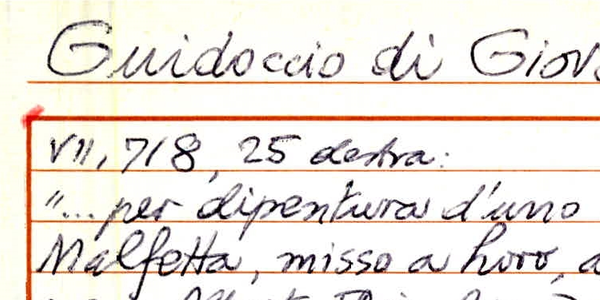 Guidoccio di Giov
VII, 718, 25 destra:
"... per dipentura d'uno
Malfetta, misso a horo, a